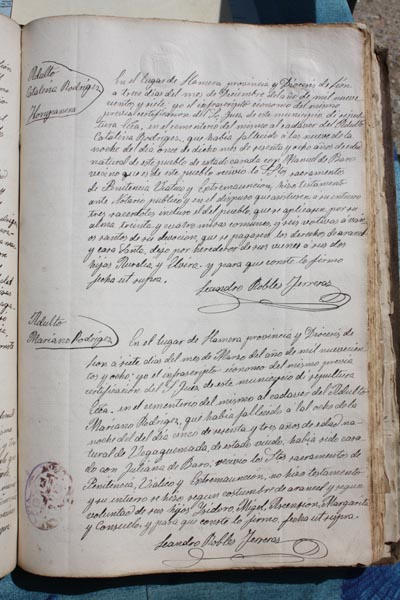 Adulto
Catalina Rodrígez
Honganera
En el lugar de Llamera provincia y Diócesis de León
a trece dias del mes de Diciembre del año de mil nueve
cientos y siete, yo el infrascripto ecónomo del mismo
previa certificacion del S. Juez de este municipio de sepul
tura Ecca. en el cementerio del mismo al cadáver del Adulto
Catalina Rodrígez, que habia fallecido a las nueve de la
noche del dia once de dicho mes de sesenta y ocho años de edad
natural de este pueblo de estado casada con Manuel de Baro
vecino que es de este pueblo recivio los Stos sacramentos
de Penitencia Viatico y Extremauncion, hizo testamento
ante Notario publico y en el dispuso que asistiesen a su entierro
tres sacerdotes incluso el del pueblo, que se aplicasen por su
alma treinta y cuatro misas comunes, y seis votivas a varios
santos de su devocion, que se pagasen los derechos de arancel
y cera Santa, dejo por herederos de sus vienes a sus dos
hijas Aurelia, y Elvira. y para que conste lo firmo
fecha ut supra.
Leandro Robles Ferreras
Adulto
Mariano Rodrigez
En el lugar de Llamera provincia y Diócesis de
León a siete dias del mes de Marzo del año de mil nuevecien
tos y ocho: yo el infrascripto ecónomo del mismo previa
certificacion del S. Juez, de este municipio de sepultura
Ecca. en el cementerio del mismo al cadaver del Adulto
Mariano Rodrigez, que habia fallecido a las ocho de la
noche del dia cinco de sesenta y tres años de edad, na
tural de Vegaquemada, de estado viudo, habia sido casa
do con Juliana de Baro, recivio los Stos sacramentos de
Penitencia, Viatico y Extremauncion, no hizo testamento
y su entierro se hizo segun costumbre de arancel y segun
voluntad de sus hijos Ysidoro, Migel, Ascension, Margarita
y Consuelo, y para que conste lo firmo, fecha ut supra.
Leandro Robles Ferreras